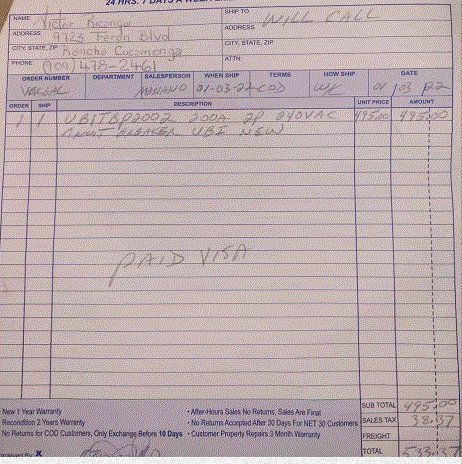 24 HRS. 7 DAYS A WEEK
NAME Victor
SHIP TO WILL CALL
ADDRESS 9723 Feron Blvd
ADDRESS
CITY, STATE, ZIP Rancho Cucamonga
CITY, STATE, ZIP
PHONE (909) 478-2461
ATTN:
ORDER NUMBER DEPARTMENT SALESPERSON WHEN SHIP TERMS HOW SHIP DATE
VERBAL 01-03-22 COD W/C 01/03/22
ORDER SHIP DESCRIPTION UNIT PRICE AMOUNT
1 1 UBITBP2002 200A 2P 240VAC 495.00 495.00
BREAKER UBI NEW
PAID VISA
New 1 Year Warranty
Recondition 2 Years Warranty
No Returns for COD Customers, Only Exchange Before 10 Days
• After-Hours Sales No Returns, Sales Are Final
• No Returns Accepted After 30 Days For NET 30 Customers
• Customer Property Repairs 3 Month Warranty
SUB TOTAL 495.00
SALES TAX 38.37
FREIGHT
TOTAL 533.37
X